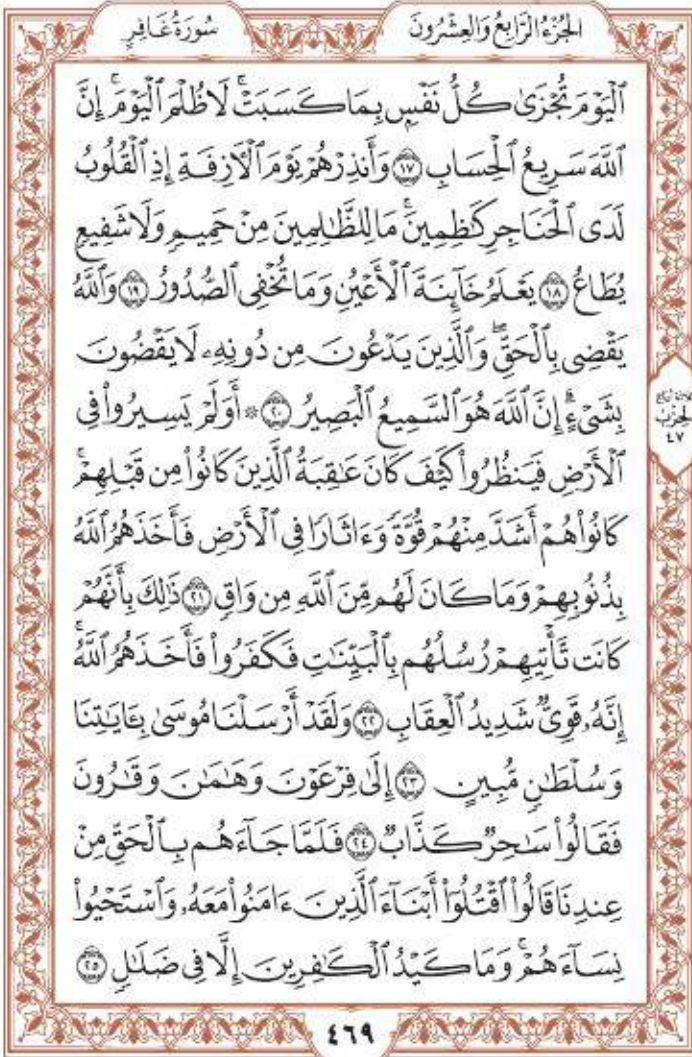 الجُزْءُ الرَّابِعُ وَالعِشْرُونَ
سُورَةُ غَافِرٍ
ٱلْيَوْمَ تُجْزَىٰ كُلُّ نَفْسٍۭ بِمَا كَسَبَتْۚ لَا ظُلْمَ ٱلْيَوْمَۚ إِنَّ
ٱللَّهَ سَرِيعُ ٱلْحِسَابِ ١٧ وَأَنذِرْهُمْ يَوْمَ ٱلْأٓزِفَةِ إِذِ ٱلْقُلُوبُ
لَدَى ٱلْحَنَاجِرِ كَٰظِمِينَۚ مَا لِلظَّٰلِمِينَ مِنْ حَمِيمٍ وَلَا شَفِيعٍ
يُطَاعُ ١٨ يَعْلَمُ خَآئِنَةَ ٱلْأَعْيُنِ وَمَا تُخْفِى ٱلصُّدُورُ ١٩ وَٱللَّهُ
يَقْضِى بِٱلْحَقِّۖ وَٱلَّذِينَ يَدْعُونَ مِن دُونِهِۦ لَا يَقْضُونَ
بِشَىْءٍۗ إِنَّ ٱللَّهَ هُوَ ٱلسَّمِيعُ ٱلْبَصِيرُ ٢٠ * أَوَلَمْ يَسِيرُوا۟ فِى
ٱلْأَرْضِ فَيَنظُرُوا۟ كَيْفَ كَانَ عَٰقِبَةُ ٱلَّذِينَ كَانُوا۟ مِن قَبْلِهِمْۚ
كَانُوا۟ هُمْ أَشَدَّ مِنْهُمْ قُوَّةً وَءَاثَارًا فِى ٱلْأَرْضِ فَأَخَذَهُمُ ٱللَّهُ
بِذُنُوبِهِمْ وَمَا كَانَ لَهُم مِّنَ ٱللَّهِ مِن وَاقٍ ٢١ ذَٰلِكَ بِأَنَّهُمْ
كَانَت تَّأْتِيهِمْ رُسُلُهُم بِٱلْبَيِّنَٰتِ فَكَفَرُوا۟ فَأَخَذَهُمُ ٱللَّهُۚ
إِنَّهُۥ قَوِىٌّ شَدِيدُ ٱلْعِقَابِ ٢٢ وَلَقَدْ أَرْسَلْنَا مُوسَىٰ بِـَٔايَٰتِنَا
وَسُلْطَٰنٍ مُّبِينٍ ٢٣ إِلَىٰ فِرْعَوْنَ وَهَٰمَٰنَ وَقَٰرُونَ
فَقَالُوا۟ سَٰحِرٌ كَذَّابٌ ٢٤ فَلَمَّا جَآءَهُم بِٱلْحَقِّ مِنْ
عِندِنَا قَالُوا۟ ٱقْتُلُوٓا۟ أَبْنَآءَ ٱلَّذِينَ ءَامَنُوا۟ مَعَهُۥ وَٱسْتَحْيُوا۟
نِسَآءَهُمْۚ وَمَا كَيْدُ ٱلْكَٰفِرِينَ إِلَّا فِى ضَلَٰلٍ ٢٥
الحِزْبُ
٤٧
٤٦٩